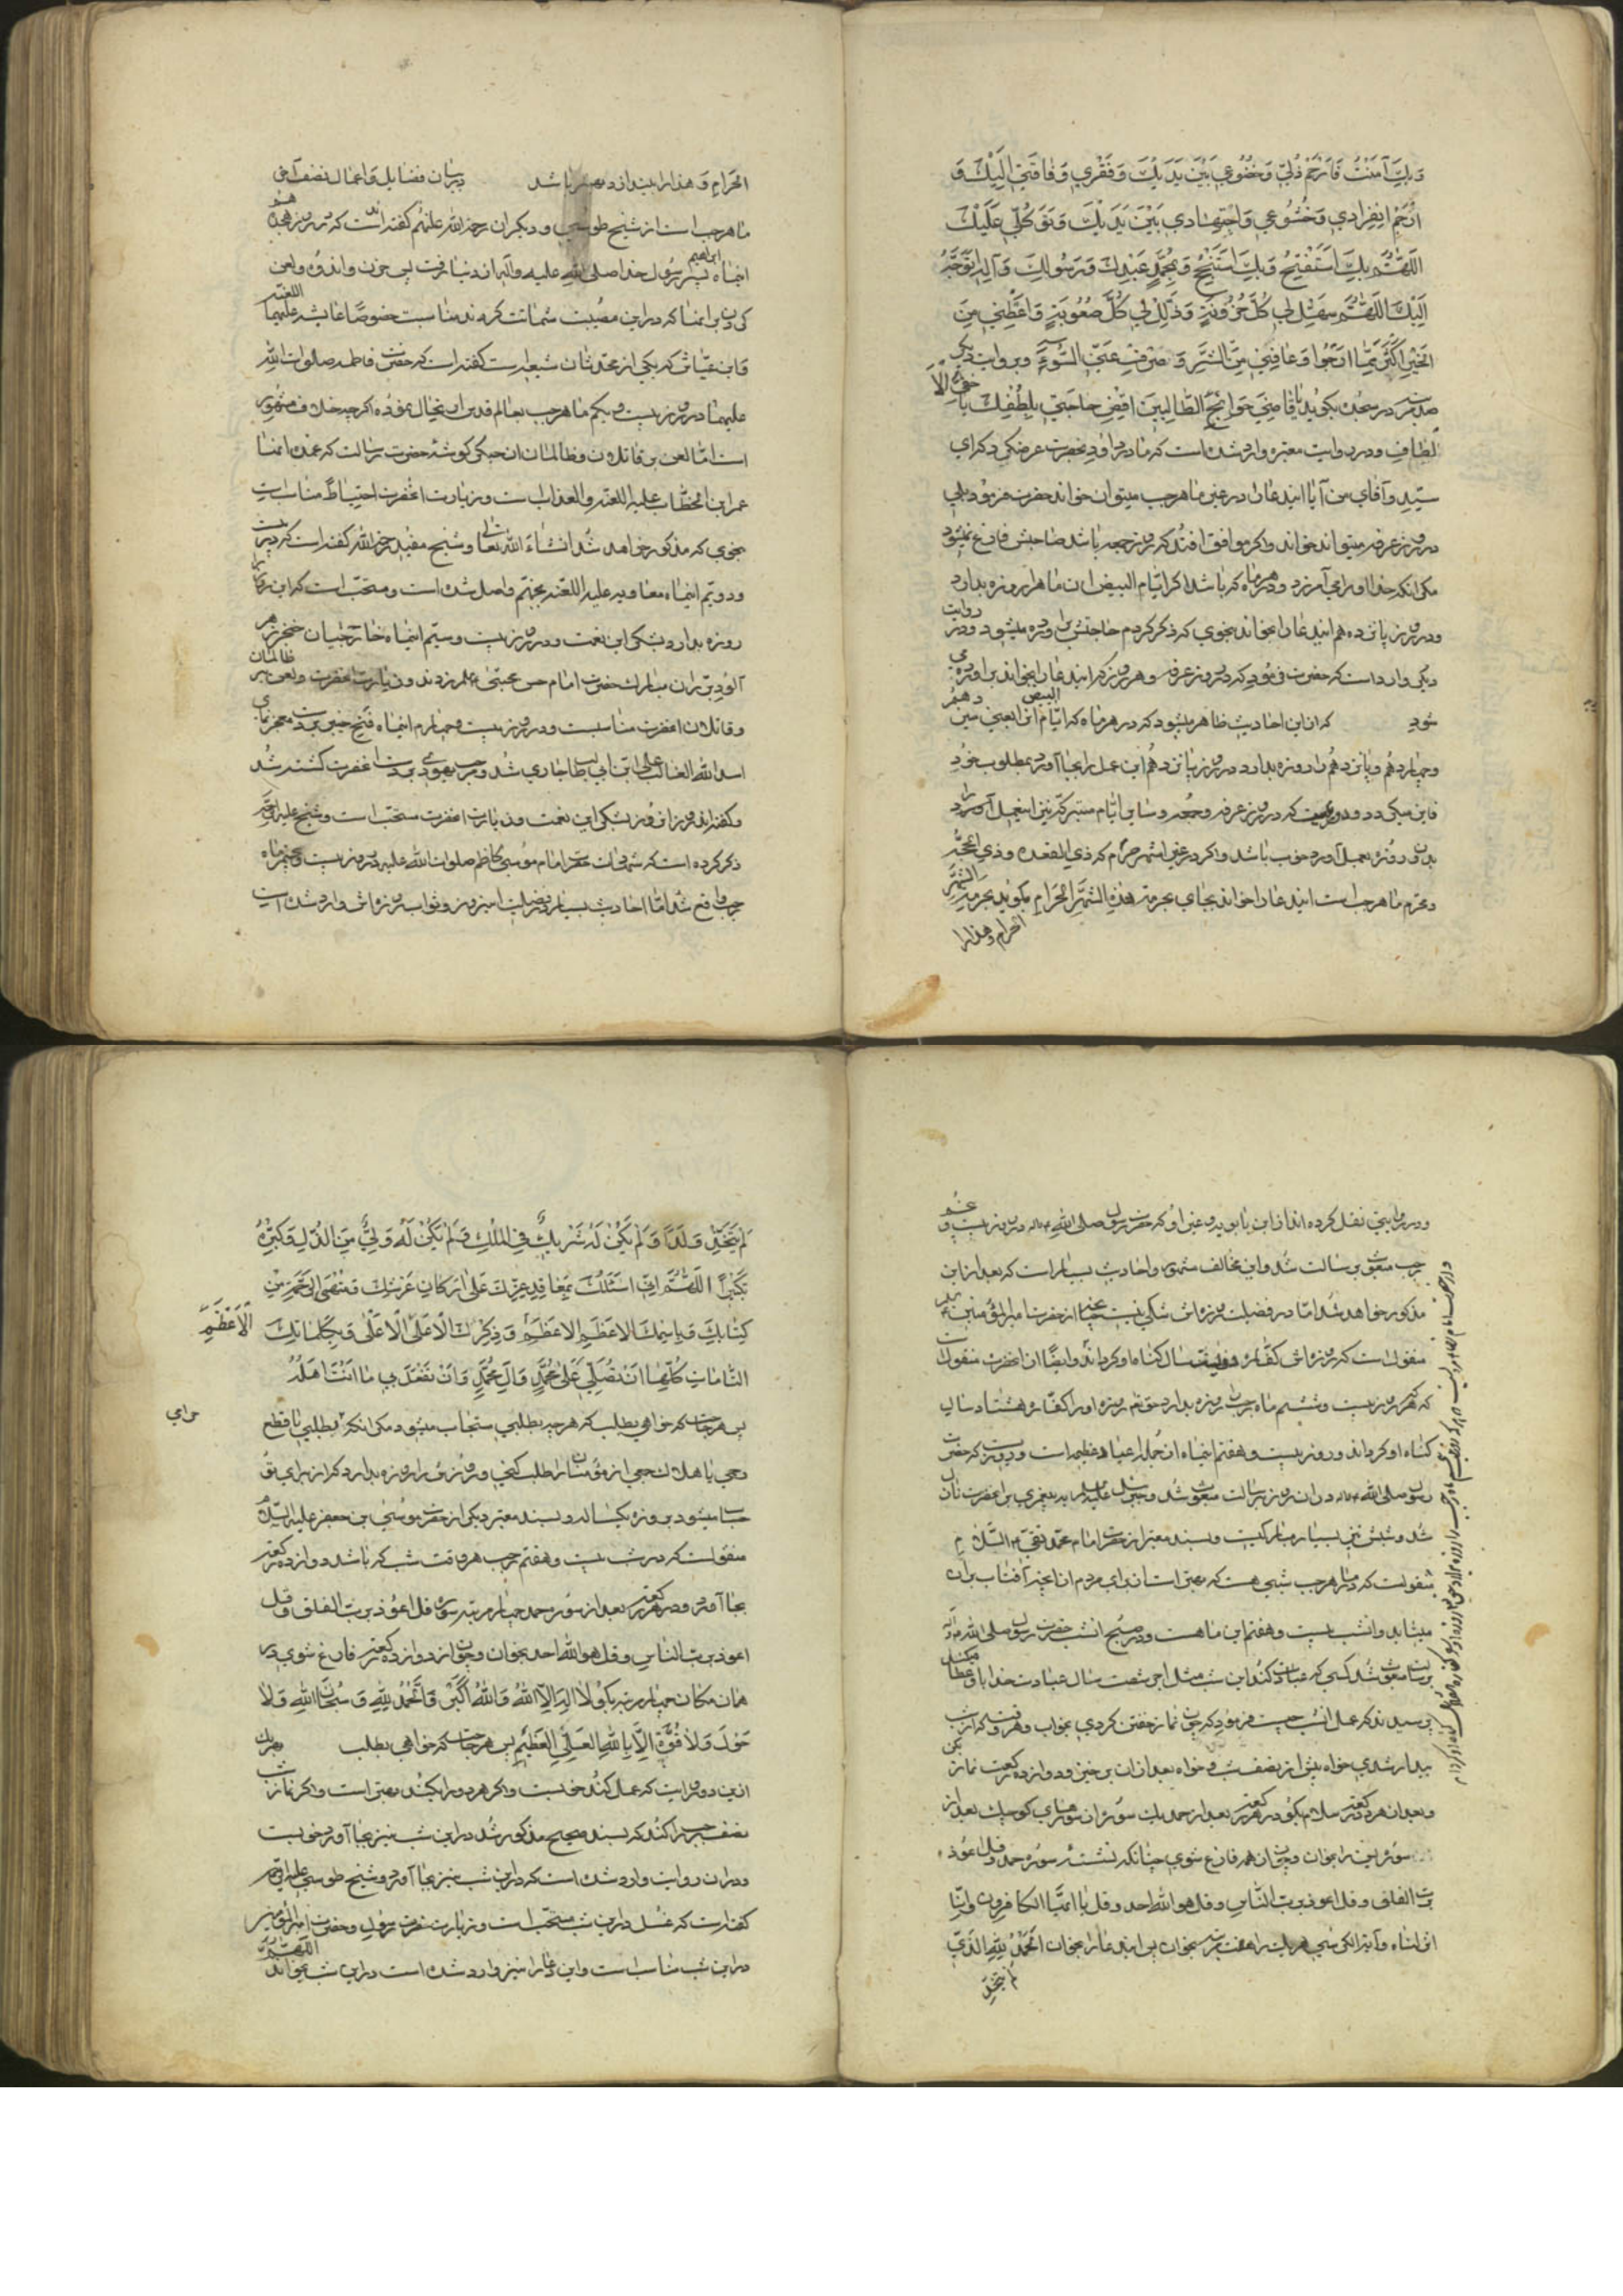 وَبِكَ آمَنْتُ فَارْحَمْ ذُلّي وَخُضُوعي بَيْنَ يَدَيْكَ وَفَقْري وَفاقَتي اِلَيْكَ وَ
ارْحَمْ انفِرادي وَخُشُوعي وَاجْتِهادي بَيْنَ يَدَيْكَ وَتَوَكُّلي عَلَيْكَ
اَللّهُمَّ بِكَ اَسْتَفْتِحُ وَبِكَ اَسْتَنْجِحُ وَبِمُحَمَّدٍ عَبْدِكَ وَرَسُولِكَ وَآلِهِ اَتَوَجَّهُ
اِلَيْكَ اَللّهُمَّ سَهِّلْ لي كُلَّ حُزُونَةٍ وَذَلِّلْ لي كُلَّ صُعُوبَةٍ وَاَعْطِني مِنَ
الْخَيْرِ اَكْثَرَ مِمّا اَرْجُوا وَعافِني مِنَ الشَّرِّ وَ صْرِفْ عَنّي السُّوءَ وبروايت ديكر
صد مرتبه در سجده بكويد يا قاضِيَ حَوائِجِ الطّالِبينَ اقْضِ حاجَتي بِلُطْفِكَ يا خَفِيَّ الْاَ
لْطافِ ودر روايت معتبره وارد شده است كه مادر داود بحضرت عرض كرد كه اي
سيّد وآقاي من آيا اين دعا را در غير ماه رجب ميتوان خواند حضرت فرمود بلي
در روز عرفه ميتواند خواند واكر موافق افتد كه روز جمعه باشد صاحبش فارغ نميشود
مكر آنكه خدا او را مي آمرزد ودر هر ماه كه باشد اكر ايّام البيض آن ماه را روزه بدارد
ودر روز پانزدهم اين دعا را بخواند بنحوي كه ذكر كردم حاجتش برآورده ميشود ودر روايت
ديكر وارد است كه حضرت فرمود كه در روز عرفه وهر روز كه اين دعا را بخواند برآورده مي
شود كه از اين احاديث ظاهر ميشود كه در هر ماه كه ايّام البيض آن يعني سيزدهم
وچهاردهم وپانزدهم را روزه بدارد در روز پانزدهم اين عمل را بجا آورد بمطلوب خود
در محرم ماه رجب است اين دعا را خواند بجاي بحرمة هذَا الشَّهْرِ الْحَرامِ بكويد بحرمة الشهر
الحرام وهذا را
الحَرامِ وَ هذا را بيندازد بهتر باشد در بيان فضايل واعمال نصف آخر
ماه رجب است از شيخ طوسي وديكران رحمة الله عليهم كفته اند است كه در روز هجدهم
اينماه ابراهيم پسر رسول خدا صلى الله عليه وآله از دنيا رفت پس حزن واندوه ولعن
كردن بر آنها كه در اين مصيبت شماتت كردند مناسبت خصوصًا عايشه عليهما اللعنة
وابن عيّاش كه يكي از محدّثان شيعه است كفته است كه حضرت فاطمه صلوات الله
عليهما در روز بيست ويكم ماه رجب بعالم قدس ارتحال نموده اكرچه خلاف مشهور
است امّا لعن بر قاتلان وظالمان آن جكر كوشهٔ حضرت رسالت كه عمدهٔ آنها
عمر ابن الخطّاب عليه اللعنة والعذاب است وزيارت آنحضرت احتياطًا مناسبست
بنحوي كه مذكور خواهد شد انشاءَ الله تعالى وشيخ مفيد رحمه الله كفته است كه در بيست
ودويّم اينماه معاويه عليه اللعنه بجهنّم واصل شده است ومستحبّ است كه اين روز را
روزه بدارد بشكر اين نعمت ودر روز بيست وسيّم اينماه خارجيان خنجر زهر
آلود بر ران مبارك حضرت امام حسن مجتبي عليه السلام زدند وزيارت آنحضرت ولعن بر ظالمان
وقاتلان آنحضرت مناسبت ودر روز بيست وچهارم اينماه فتح خيبر بر دست معجز نماي
اسد الله الغالب علي ابن ابي طالب جاري شد ومرحب يهودي بر دست آنحضرت كشته شد
وكفته اند روزهٔ آن روز بشكر اين نعمت وزيارت آنحضرت مستحبّ است وشيخ عليه الرحمه
ذكر كرده است كه شهادت حضرت امام موسي كاظم صلوات الله عليه در روز بيست وپنجم ماه
رجب واقع شد امّا احاديث بسيار در فضيلت اين روز وثواب روزه اش وارد شده است
ودر روايتي نقل كرده اند از ابن بابويه وغير او كه حضرت رسول صلى الله عليه وآله در روز بيست و
رجب مبعوث بر رسالت شد واين مخالف مشهور واحاديث بسيار است كه بعد از اين
مذكور خواهد شد امّا در فضيلت روزه اش شكي نيست چنانچه از حضرت امير المؤمنين عليه السلام
منقول است كه روزه اش كفّارهٔ دويست سال كناه او كرداند وايضًا از آنحضرت منقول است
كه هركه روز بيست وششم ماه رجب روزه بدارد حق تعالى روزهٔ او را كفّارهٔ هشتاد سال
كناه او كرداند وروز بيست وهفتم اينماه از جملهٔ اعياد عظيمه است وروزيست كه حضرت
رسول صلى الله عليه وآله در آن روز برسالت مبعوث شد وجبرئيل عليه السلام به پيغمبري بر آنحضرت نازل
شد وشبش نيز بسيار مباركست وبسند معتبر از حضرت امام محمّد تقي عليه السّلام
منقولست كه در ماه رجب شبي هست كه بهتر است از براي مردم از آنچه آفتاب بر آن
ميتابد وآن شب بيست وهفتم اين ماهست ودر صبح آنشب حضرت رسول صلى الله عليه وآله
برسالت مبعوث شد كسي كه عبادت كند اين شب مثل اجر شصت سال عبادت خدا باو عطا ميكند
پرسيدند كه عمل آنشب چيست فرمود كه چون نماز خفتن كردي بخواب وهر وقت كه از شب
بيدار شدي خواه پيش از نصف شب وخواه بعد از آن برخيز ودوازده ركعت نماز بكن
وبعد از هر دو ركعت سلام بكو ودر هر ركعت بعد از حمد يك سوره از سورهاي كوچك بعد از
سورهٔ يس را بخوان وچون از همه فارغ شوي چنانكه نشستهٔ سورهٔ حمد وقل اعوذ
بربّ الفلق وقل اعوذ بربّ النّاس وقل هو الله احد وقل يا ايّها الكافرون وانّا
انزلناه وآية الكرسي هر يك را هفت مرتبه بخوان پس اين دعا را بخوان اَلْحَمْدُ لِلّهِ الَّذي
لَمْ يَتَّخِذْ
لَمْ يَتَّخِذْ وَلَدًا وَلَمْ يَكُنْ لَهُ شَريكٌ فِي الْمُلْكِ وَلَمْ يَكُنْ لَهُ وَلِيٌّ مِنَ الذُّلِّ وَكَبِّرْهُ
تَكْبيرًا اَللّهُمَّ اِنّي اَسْئَلُكَ بِمَعاقِدِ عِزِّكَ عَلى اَرْكانِ عَرْشِكَ وَمُنْتَهَى الرَّحْمَةِ مِنْ
كِتابِكَ وَبِاسْمِكَ الاَعْظَمِ الاَعْظَمِ الْاَعْظَمِ وَذِكْرِكَ الْاَعْلَى الْاَعْلَى الْاَعْلى وَبِكَلِماتِكَ
التّامّاتِ كُلِّها اَنْ تُصَلِّيَ عَلى مُحَمَّدٍ وَآلِ مُحَمَّدٍ وَاَنْ تَفْعَلَ بي ما اَنْتَ اَهْلُهُ
پس هر حاجت كه خواهي بطلب كه هرچه بطلبي مستجاب ميشود مكر آنكه بطلبي يا قطع
حرامي
رحمي يا هلاك جمعي از مؤمنان را طلب كني وروزش را روزه بدارد كه از براي تو
حساب ميشود بروزهٔ يكساله وبسند معتبر ديكر از حضرت موسي بن جعفر عليه السّلام
منقولست كه در شب بيست وهفتم رجب هر وقت شب كه باشد دوازده ركعت
بجا آورد ودر هر ركعت بعد از سورهٔ حمد چهار مرتبه سورهٔ قل اعوذ بربّ الفلق وقل
اعوذ بربّ النّاس وقل هو الله احد بخوان وچون از دوازده ركعت فارغ شوي در
همان مكان چهار مرتبه بكو لا اِلهَ اِلَّا اللهُ وَاللهُ اَكْبَرُ وَالْحَمْدُ لِلّهِ وَسُبْحانَ اللهِ وَلا
حَوْلَ وَلا قُوَّةَ اِلّا بِاللهِ الْعَلِيِّ الْعَظيمِ پس هر حاجت كه خواهي بطلب وهر يك
از اين دو روايت كه عمل كند خوبست واكر هر دو را بكند بهتر است واكر نماز شب
نصف رجب را كند كه بسند صحيح مذكور شد در اين شب نيز بجا آورد خوبست
ودر آن روايت وارد شده است كه در اين شب نيز بجا آورد وشيخ طوسي عليه الرحمه
كفته است كه غسل در اين شب مستحبّ است وزيارت حضرت رسول وحضرت امير المؤمنين
در اين شب مناسب است واين دعا را نيز وارد شده است در اين شب بخواند اللّهُمَّ